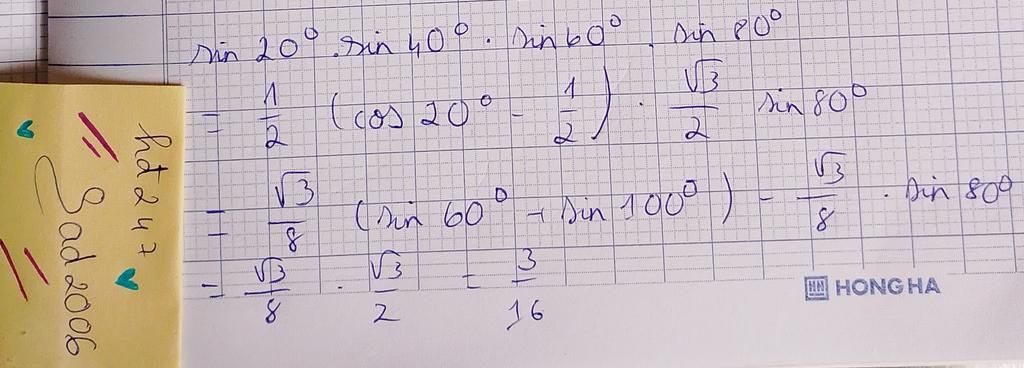 sin 20° . sin 40° . sin 60° . sin 80°
= 1/2 (cos 20° - 1/2) . √3/2 sin 80°
= √3/8 (sin 60° + sin 100°) - √3/8 . sin 80°
= √3/8 . √3/2 = 3/16
HH HONG HA
hđ 247
Sad2006